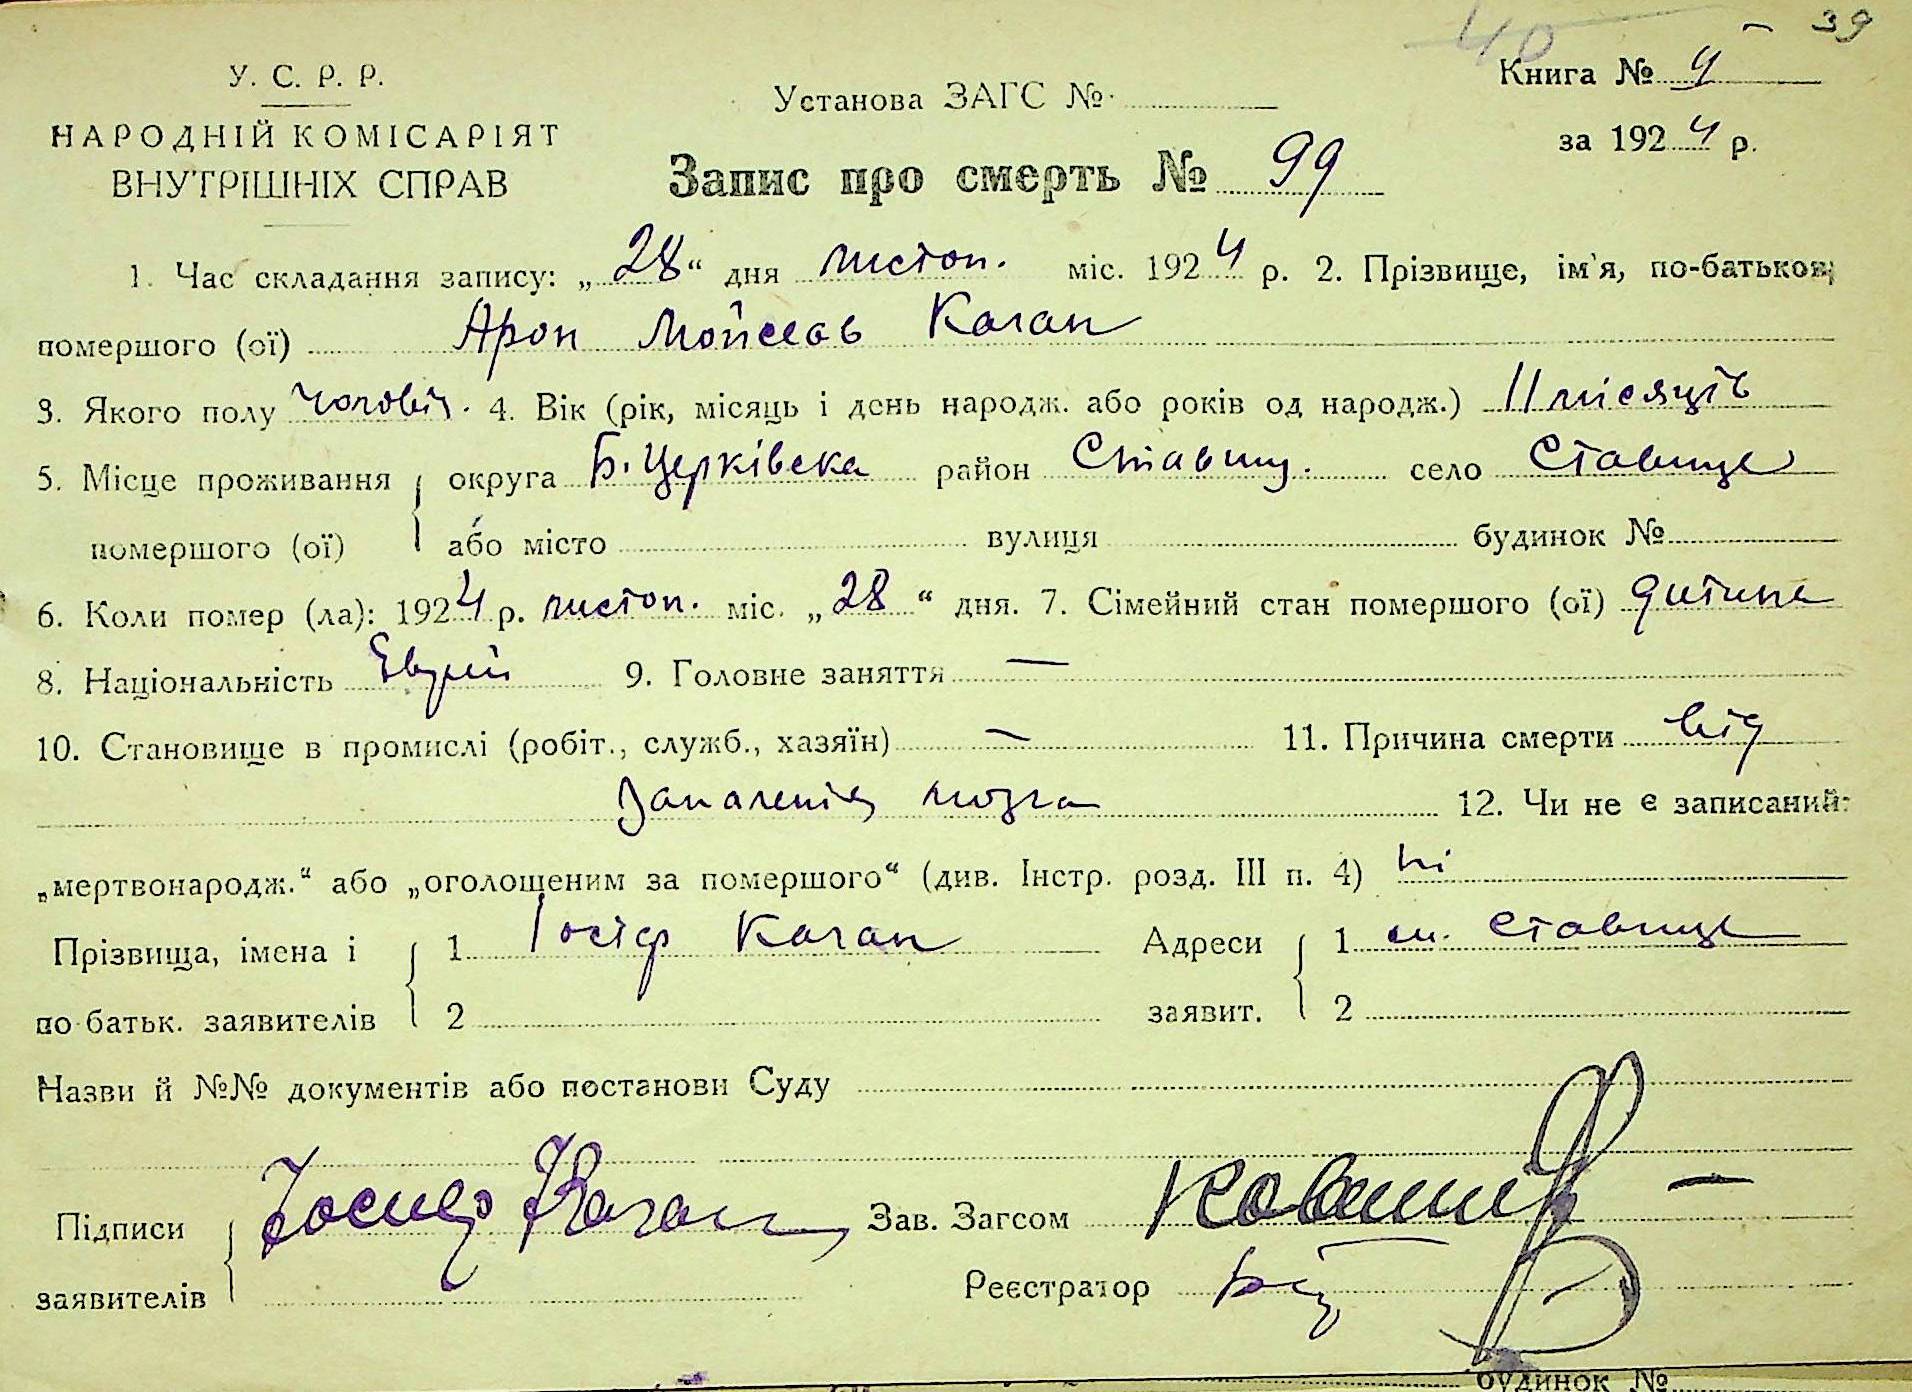 40 – 39
У. С. Р. Р.
НАРОДНІЙ КОМІСАРІЯТ
ВНУТРІШНІХ СПРАВ
Установа ЗАГС №
Книга № 4
за 1924 р.
Запис про смерть № 99
1. Час складання запису: „28“ дня листоп. міс. 1924 р. 2. Прізвище, ім'я, по-батькові
помершого (ої) Арон Мойсеєв Каган
3. Якого полу чоловіч. 4. Вік (рік, місяць і день народж. або років од народж.) 11 місяців
5. Місце проживання округа Б. Церківска район Ставищ. село Ставище
помершого (ої) або місто вулиця будинок №
6. Коли помер (ла): 1924 р. листоп. міс. „28“ дня. 7. Сімейний стан помершого (ої) дитина
8. Національність Еврей 9. Головне заняття —
10. Становище в промислі (робіт., служб., хазяїн) — 11. Причина смерти від
запаления мозга 12. Чи не є записаний:
„мертвонародж.“ або „оголошеним за помершого“ (див. Інстр. розд. III п. 4) ні
Прізвища, імена і 1 Іосіф Каган Адреси 1 м. Ставище
по батьк. заявителів 2 заявит. 2
Назви й №№ документів або постанови Суду
Підписи Іосиф Каган Зав. Загсом
заявителів Реєстратор
будинок №